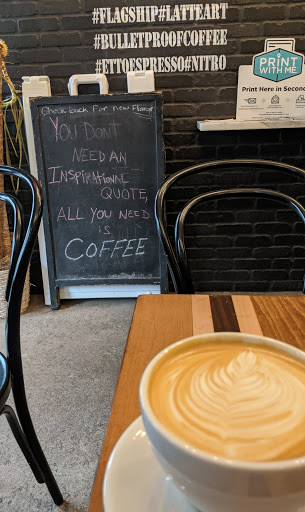 #FLAGSHIP#LATTEART
#BULLETPROOFCOFFEE
#ETTOESPRESSO#NITRO
PRINT
WITH ME
Print Here in Second
Check back for new Flavor
YOU DON'T
NEED AN
INSPIRATIONAL
QUOTE,
ALL YOU NEED
is
COFFEE